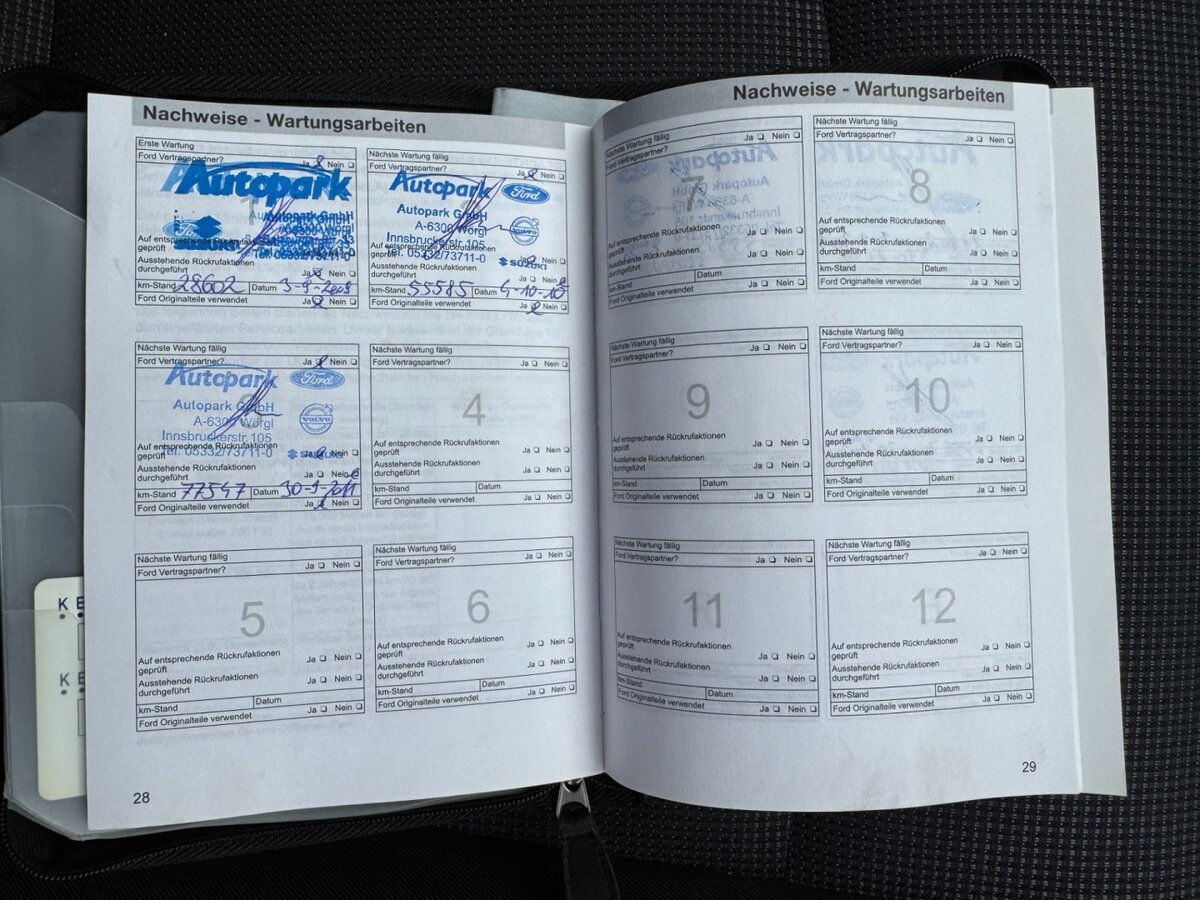 Nachweise - Wartungsarbeiten
Erste Wartung
Ford Vertragspartner? Ja Nein
Autopark
Autopark GmbH
Auf entsprechende Rückrufaktionen
geprüft
Ausstehende Rückrufaktionen Ja Nein
durchgeführt
km-Stand 28602 Datum 3-9-2009
Ford Originalteile verwendet Ja Nein
Nächste Wartung fällig
Ford Vertragspartner? Ja Nein
Autopark Ford
Autopark GmbH
A-6300 Wörgl
Innsbruckerstr. 105
Tel. 05332/73711-0
VOLVO
SUZUKI
Auf entsprechende Rückrufaktionen
geprüft
Ausstehende Rückrufaktionen
durchgeführt Ja Nein
km-Stand 55585 Datum 4-10-10
Ford Originalteile verwendet Ja Nein
Nächste Wartung fällig
Ford Vertragspartner? Ja Nein
3
Autopark Ford
Autopark GmbH
A-6300 Wörgl
Innsbruckerstr. 105
Tel. 05332/73711-0
VOLVO
SUZUKI
Auf entsprechende Rückrufaktionen
geprüft Ja Nein
Ausstehende Rückrufaktionen
durchgeführt Ja Nein
km-Stand 77547 Datum 30-9-2011
Ford Originalteile verwendet Ja Nein
Nächste Wartung fällig
Ford Vertragspartner? Ja Nein
4
Auf entsprechende Rückrufaktionen
geprüft Ja Nein
Ausstehende Rückrufaktionen
durchgeführt Ja Nein
km-Stand Datum
Ford Originalteile verwendet Ja Nein
Nächste Wartung fällig
Ford Vertragspartner? Ja Nein
5
Auf entsprechende Rückrufaktionen
geprüft Ja Nein
Ausstehende Rückrufaktionen
durchgeführt Ja Nein
km-Stand Datum
Ford Originalteile verwendet Ja Nein
Nächste Wartung fällig
Ford Vertragspartner? Ja Nein
6
Auf entsprechende Rückrufaktionen
geprüft Ja Nein
Ausstehende Rückrufaktionen
durchgeführt Ja Nein
km-Stand Datum
Ford Originalteile verwendet Ja Nein
28
Nachweise - Wartungsarbeiten
Nächste Wartung fällig
Ford Vertragspartner? Ja Nein
7
Auf entsprechende Rückrufaktionen
geprüft Ja Nein
Ausstehende Rückrufaktionen
durchgeführt Ja Nein
km-Stand Datum
Ford Originalteile verwendet Ja Nein
Nächste Wartung fällig
Ford Vertragspartner? Ja Nein
8
Auf entsprechende Rückrufaktionen
geprüft Ja Nein
Ausstehende Rückrufaktionen
durchgeführt Ja Nein
km-Stand Datum
Ford Originalteile verwendet Ja Nein
Nächste Wartung fällig
Ford Vertragspartner? Ja Nein
9
Auf entsprechende Rückrufaktionen
geprüft Ja Nein
Ausstehende Rückrufaktionen
durchgeführt Ja Nein
km-Stand Datum
Ford Originalteile verwendet Ja Nein
Nächste Wartung fällig
Ford Vertragspartner? Ja Nein
10
Auf entsprechende Rückrufaktionen
geprüft Ja Nein
Ausstehende Rückrufaktionen
durchgeführt Ja Nein
km-Stand Datum
Ford Originalteile verwendet Ja Nein
Nächste Wartung fällig
Ford Vertragspartner? Ja Nein
11
Auf entsprechende Rückrufaktionen
geprüft Ja Nein
Ausstehende Rückrufaktionen
durchgeführt Ja Nein
km-Stand Datum
Ford Originalteile verwendet Ja Nein
Nächste Wartung fällig
Ford Vertragspartner? Ja Nein
12
Auf entsprechende Rückrufaktionen
geprüft Ja Nein
Ausstehende Rückrufaktionen
durchgeführt Ja Nein
km-Stand Datum
Ford Originalteile verwendet Ja Nein
29